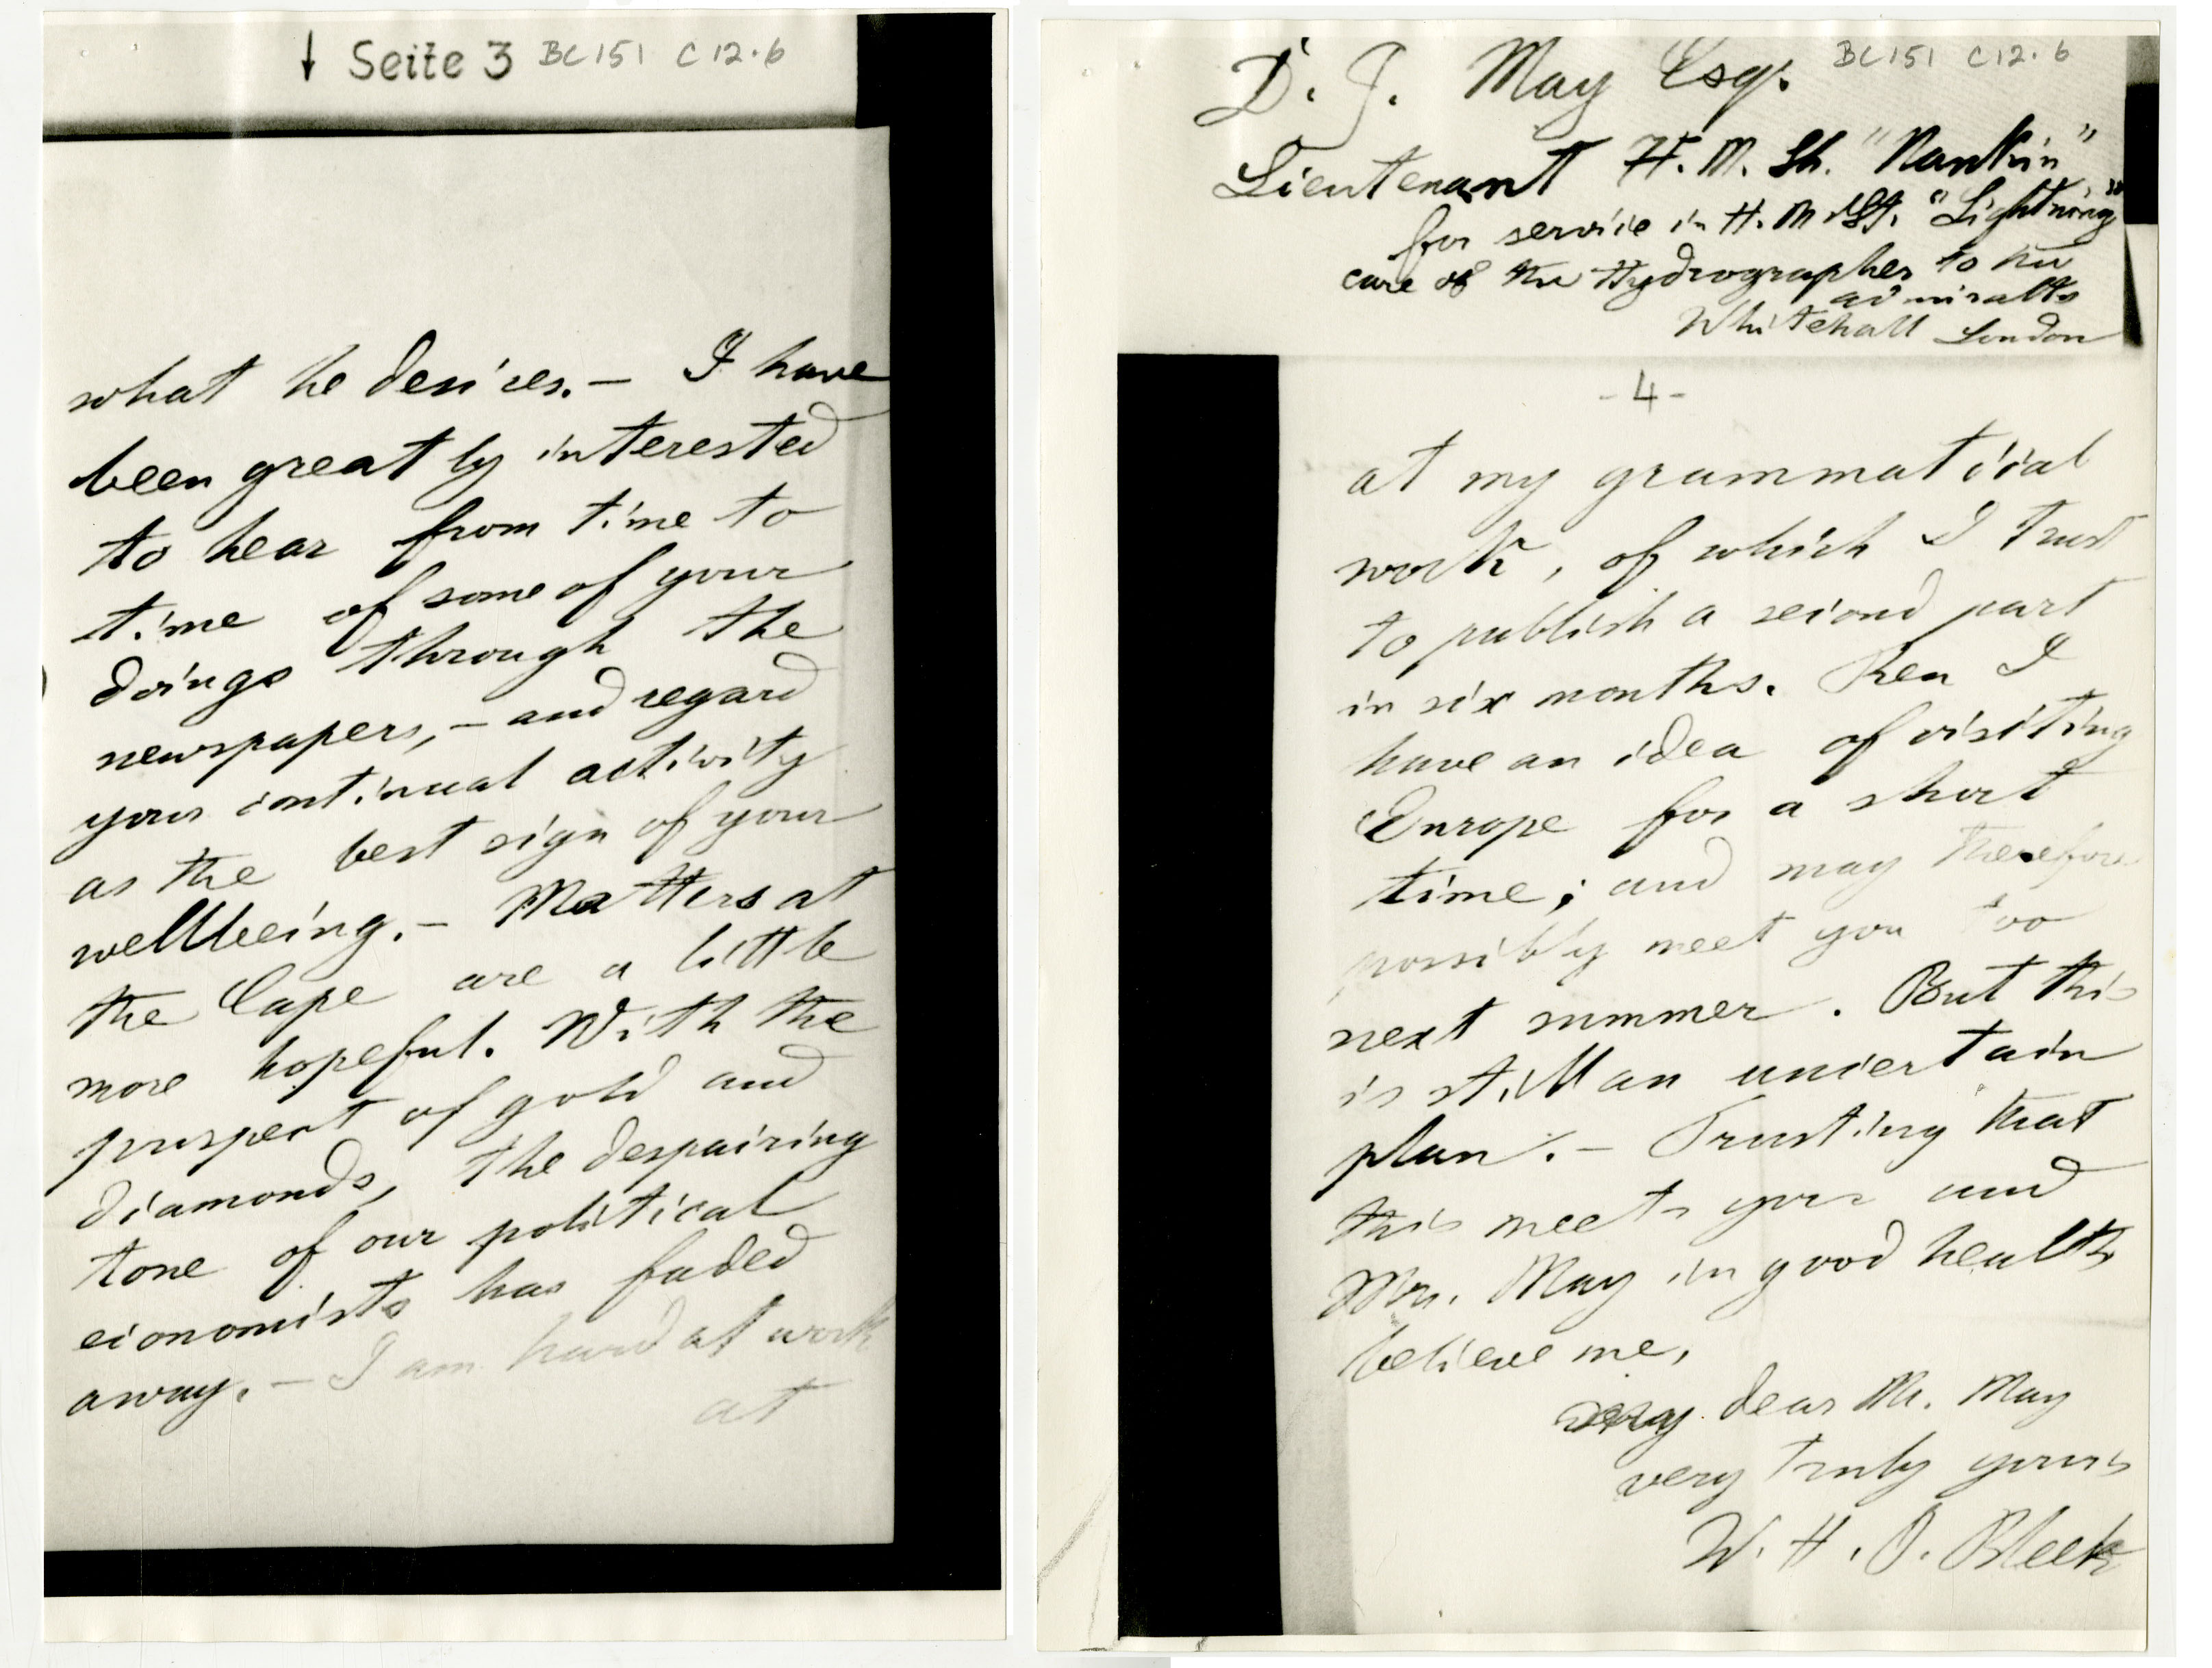 ↓ Seite 3 BC151 C12.6
what he desires.— I have
been greatly interested
to hear from time to
time of some of your
doings through the
newspapers,— and regard
your continual activity
as the best sign of your
wellbeing.— Matters at
the Cape are a little
more hopeful. With the
prospect of gold and
diamonds, the despairing
tone of our political
economists has faded
away.— I am hard at work
at
BC151 C12.6
D. J. May Esq.
Lieutenant H. M. Sh. "Nankin"
for service in H. M. St. "Lightning"
care of the Hydrographer to the
admiralty
Whitehall London
- 4 -
at my grammatical
work, of which I trust
to publish a second part
in six months. Then I
have an idea of visiting
Europe for a short
time; and may therefore
possibly meet you too
next summer. But this
is still an uncertain
plan.— Trusting that
this meets you and
Mrs. May in good health
believe me,
dear Mr. May
very truly yours
W. H. I. Bleek